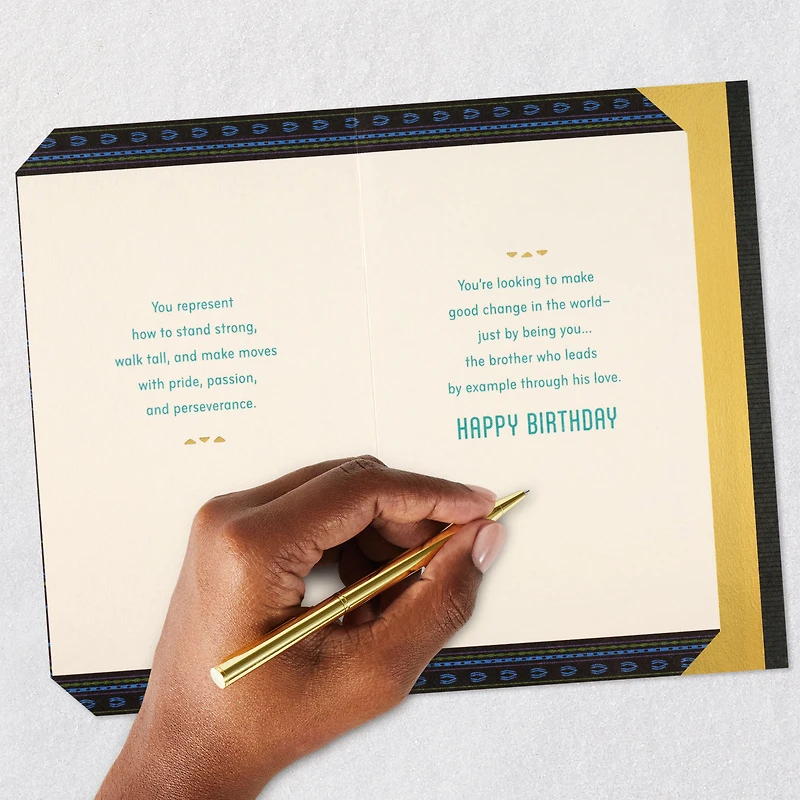 You represent
how to stand strong,
walk tall, and make moves
with pride, passion,
and perseverance.
You're looking to make
good change in the world–
just by being you...
the brother who leads
by example through his love.
HAPPY BIRTHDAY